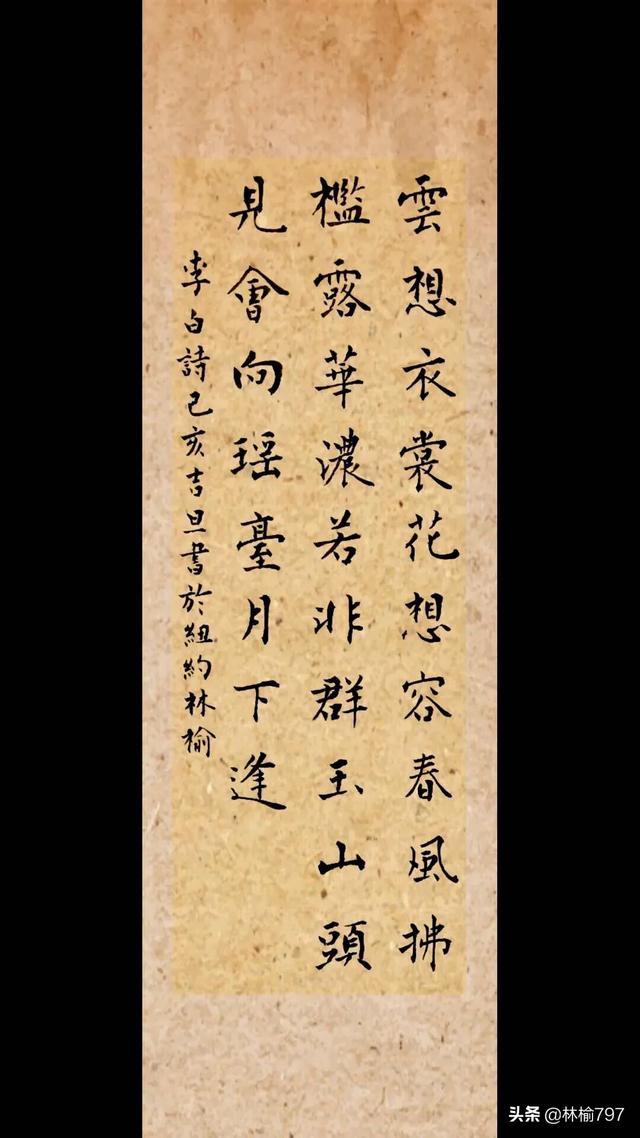 雲想衣裳花想容春風拂
檻露華濃若非群玉山頭
見會向瑶臺月下逢
李白詩己亥吉旦書於紐約林榆
头条 @林榆797